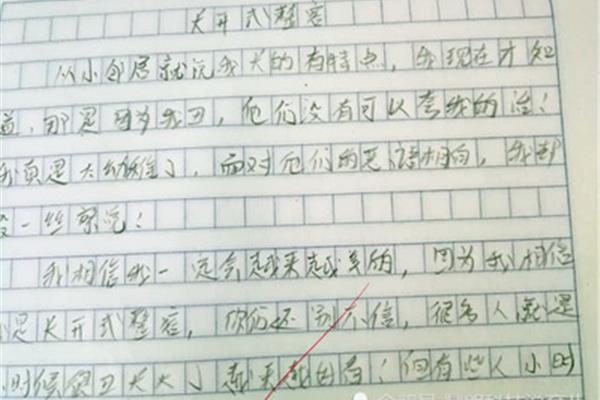 长开式整容
从小邻居就说我长的有特点，我现在才知
道，那是因为我丑，他们没有可以夸我的话！
我真是太幼稚了，面对他们的恶语相向，我却
没一丝察觉！
我相信我一定会越来越美的，因为我相信
是长开式整容，你们还别不信，很多人就是
时候很丑长大了越来越好看！但有些人小时